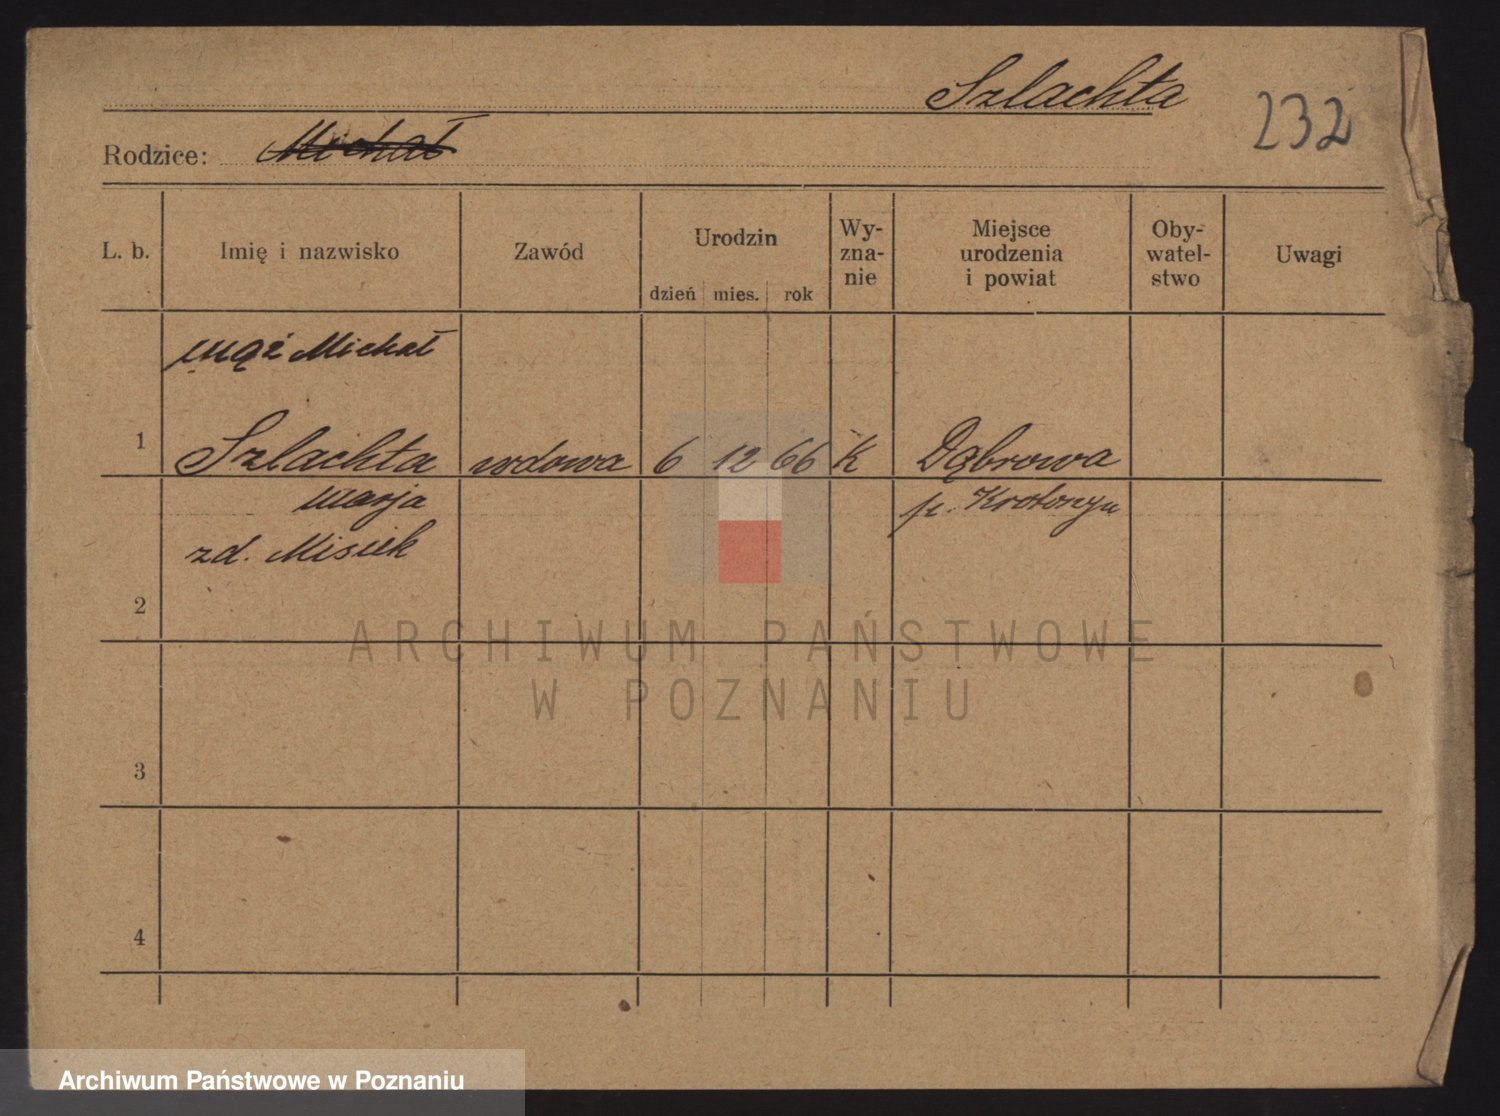 Szlachta
232
Rodzice: Michał
L. b. Imię i nazwisko Zawód Urodzin dzień mies. rok Wy-zna-nie Miejsce urodzenia i powiat Oby-watel-stwo Uwagi
mąż Michał
1 Szlachta wdowa 6 12 66 K Dąbrowa
Marja p. Krotoszyn
zd. Misiek
2
3
4
ARCHIWUM PAŃSTWOWE
W POZNANIU
Archiwum Państwowe w Poznaniu